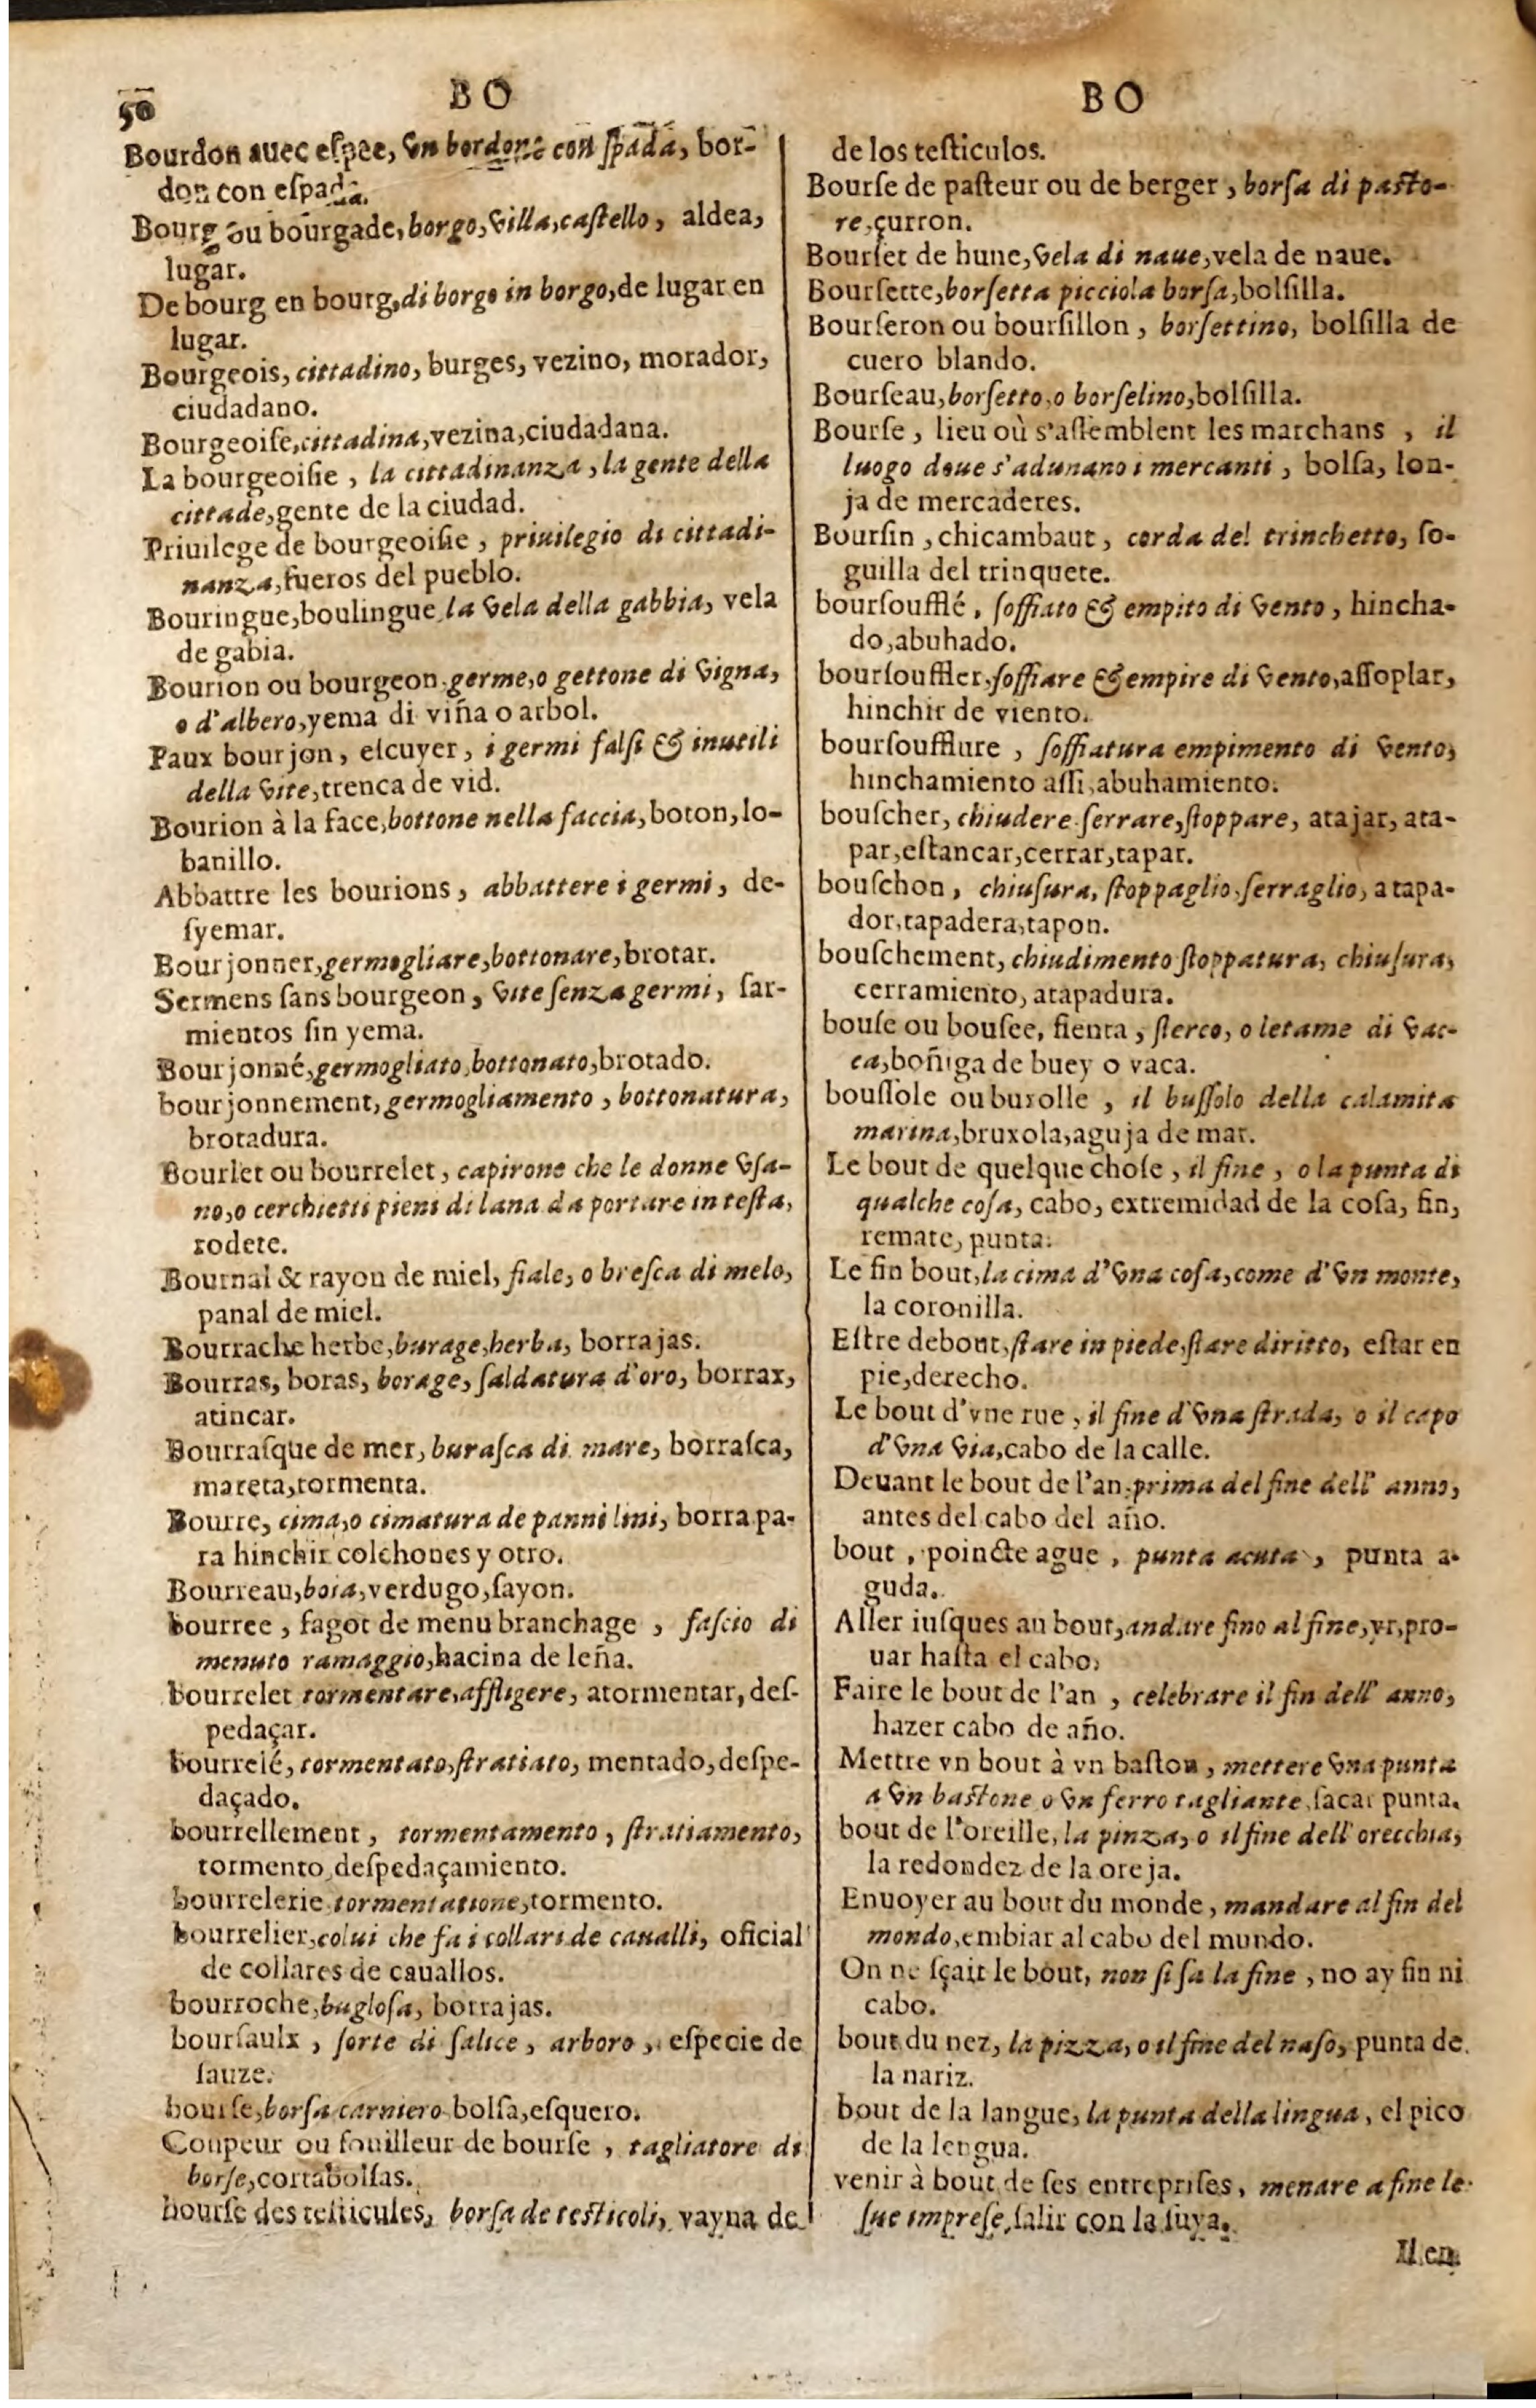 50
BO
Bourdon auec eſpee, vn bordone con ſpada, bor-
don con eſpada.
Bourg ou bourgade, borgo, villa, caſtello, aldea,
lugar.
De bourg en bourg, di borgo in borgo, de lugar en
lugar.
Bourgeois, cittadino, burges, vezino, morador,
ciudadano.
Bourgeoiſe, cittadina, vezina, ciudadana.
La bourgeoiſie, la cittadinanza, la gente della
cittade, gente de la ciudad.
Priuilege de bourgeoiſie, priuilegio di cittadi-
nanza, fueros del pueblo.
Bouringue, boulingue, la vela della gabbia, vela
de gabia.
Bourion ou bourgeon, germe, o gettone di vigna,
o d'albero, yema di viña o arbol.
Faux bourjon, eſcuyer, i germi falſi & inutili
della vite, trenca de vid.
Bourion à la face, bottone nella faccia, boton, lo-
banillo.
Abbattre les bourions, abbattere i germi, de-
ſyemar.
Bourjonner, germogliare, bottonare, brotar.
Sermens ſans bourgeon, vite ſenza germi, ſar-
mientos ſin yema.
Bourjonné, germogliato, bottonato, brotado.
bourjonnement, germogliamento, bottonatura,
brotadura.
Bourlet ou bourrelet, capirone che le donne vſa-
no, o cerchietti pieni di lana da portare in teſta,
rodete.
Bournal & rayon de miel, fiale, o breſca di melo,
panal de miel.
Bourrache herbe, burage, herba, borrajas.
Bourras, boras, borage, ſaldatura d'oro, borrax,
atincar.
Bourraſque de mer, buraſca di mare, borraſca,
mareta, tormenta.
Bourre, cima, o cimatura de panni lini, borra pa-
ra hinchir colchones y otro.
Bourreau, boia, verdugo, ſayon.
bourree, fagot de menu branchage, faſcio di
menuto ramaggio, hacina de leña.
bourrelet tormentare, affligere, atormentar, deſ-
pedaçar.
bourrelé, tormentato, ſtratiato, mentado, deſpe-
daçado.
bourrellement, tormentamento, ſtratiamento,
tormento, deſpedaçamiento.
bourrelerie, tormentatione, tormento.
bourrelier, colui che fa i collari de caualli, oficial
de collares de cauallos.
bourroche, bugloſa, borrajas.
bourſaulx, ſorte di ſalice, arboro, eſpecie de
ſauze.
bourſe, borſa carniero bolſa, eſquero.
Coupeur ou fouilleur de bourſe, tagliatore di
borſe, cortabolſas.
bourſe des teſticules, borſa de teſticoli, vayna de
BO
de los teſticulos.
Bourſe de paſteur ou de berger, borſa di paſto-
re, çurron.
Bourſet de hune, vela di naue, vela de naue.
Bourſette, borſetta picciola borſa, bolſilla.
Bourſeron ou bourſillon, borſettino, bolſilla de
cuero blando.
Bourſeau, borſetto, o borſelino, bolſilla.
Bourſe, lieu où s'aſſemblent les marchans, il
luogo doue s'adunano i mercanti, bolſa, lon-
ja de mercaderes.
Bourſin, chicambaut, corda del trinchetto, ſo-
guilla del trinquete.
bourſoufflé, ſoffiato & empito di vento, hincha-
do, abuhado.
bourſouffler, ſoffiare & empire di vento, aſſoplar,
hinchir de viento.
bourſoufflure, ſoffiatura empimento di vento,
hinchamiento aſſi, abuhamiento.
bouſcher, chiudere ſerrare, ſtoppare, atajar, ata-
par, eſtancar, cerrar, tapar.
bouſchon, chiuſura, ſtoppaglio, ſerraglio, atapa-
dor, tapadera, tapon.
bouſchement, chiudimento ſtoppatura, chiuſura,
cerramiento, atapadura.
bouſe ou bouſee, fienta, ſterco, o letame di vac-
ca, boñiga de buey o vaca.
bouſſole ou buxolle, il buſſolo della calamita
marina, bruxola, aguja de mar.
Le bout de quelque choſe, il fine, o la punta di
qualche coſa, cabo, extremidad de la coſa, fin,
remate, punta.
Le fin bout, la cima d'vna coſa, come d'vn monte,
la coronilla.
Eſtre debout, ſtare in piede, ſtare diritto, eſtar en
pie, derecho.
Le bout d'vne rue, il fine d'vna ſtrada, o il capo
d'vna via, cabo de la calle.
Deuant le bout de l'an, prima del fine dell' anno,
antes del cabo del año.
bout, poincte ague, punta acuta, punta a-
guda.
Aller iuſques au bout, andare fino al fine, yr, pro-
uar haſta el cabo,
Faire le bout de l'an, celebrare il fin dell' anno,
hazer cabo de año.
Mettre vn bout à vn baſton, mettere vna punta
a vn baſtone o vn ferro tagliante, ſacar punta.
bout de l'oreille, la pinza, o il fine dell' orecchia,
la redondez de la oreja.
Enuoyer au bout du monde, mandare al fin del
mondo, embiar al cabo del mundo.
On ne ſçait le bout, non ſi ſa la fine, no ay fin ni
cabo.
bout du nez, la pizza, o il fine del naſo, punta de
la nariz.
bout de la langue, la punta della lingua, el pico
de la lengua.
venir à bout de ſes entrepriſes, menare a fine le
ſue impreſe, ſalir con la ſuya.
Il en